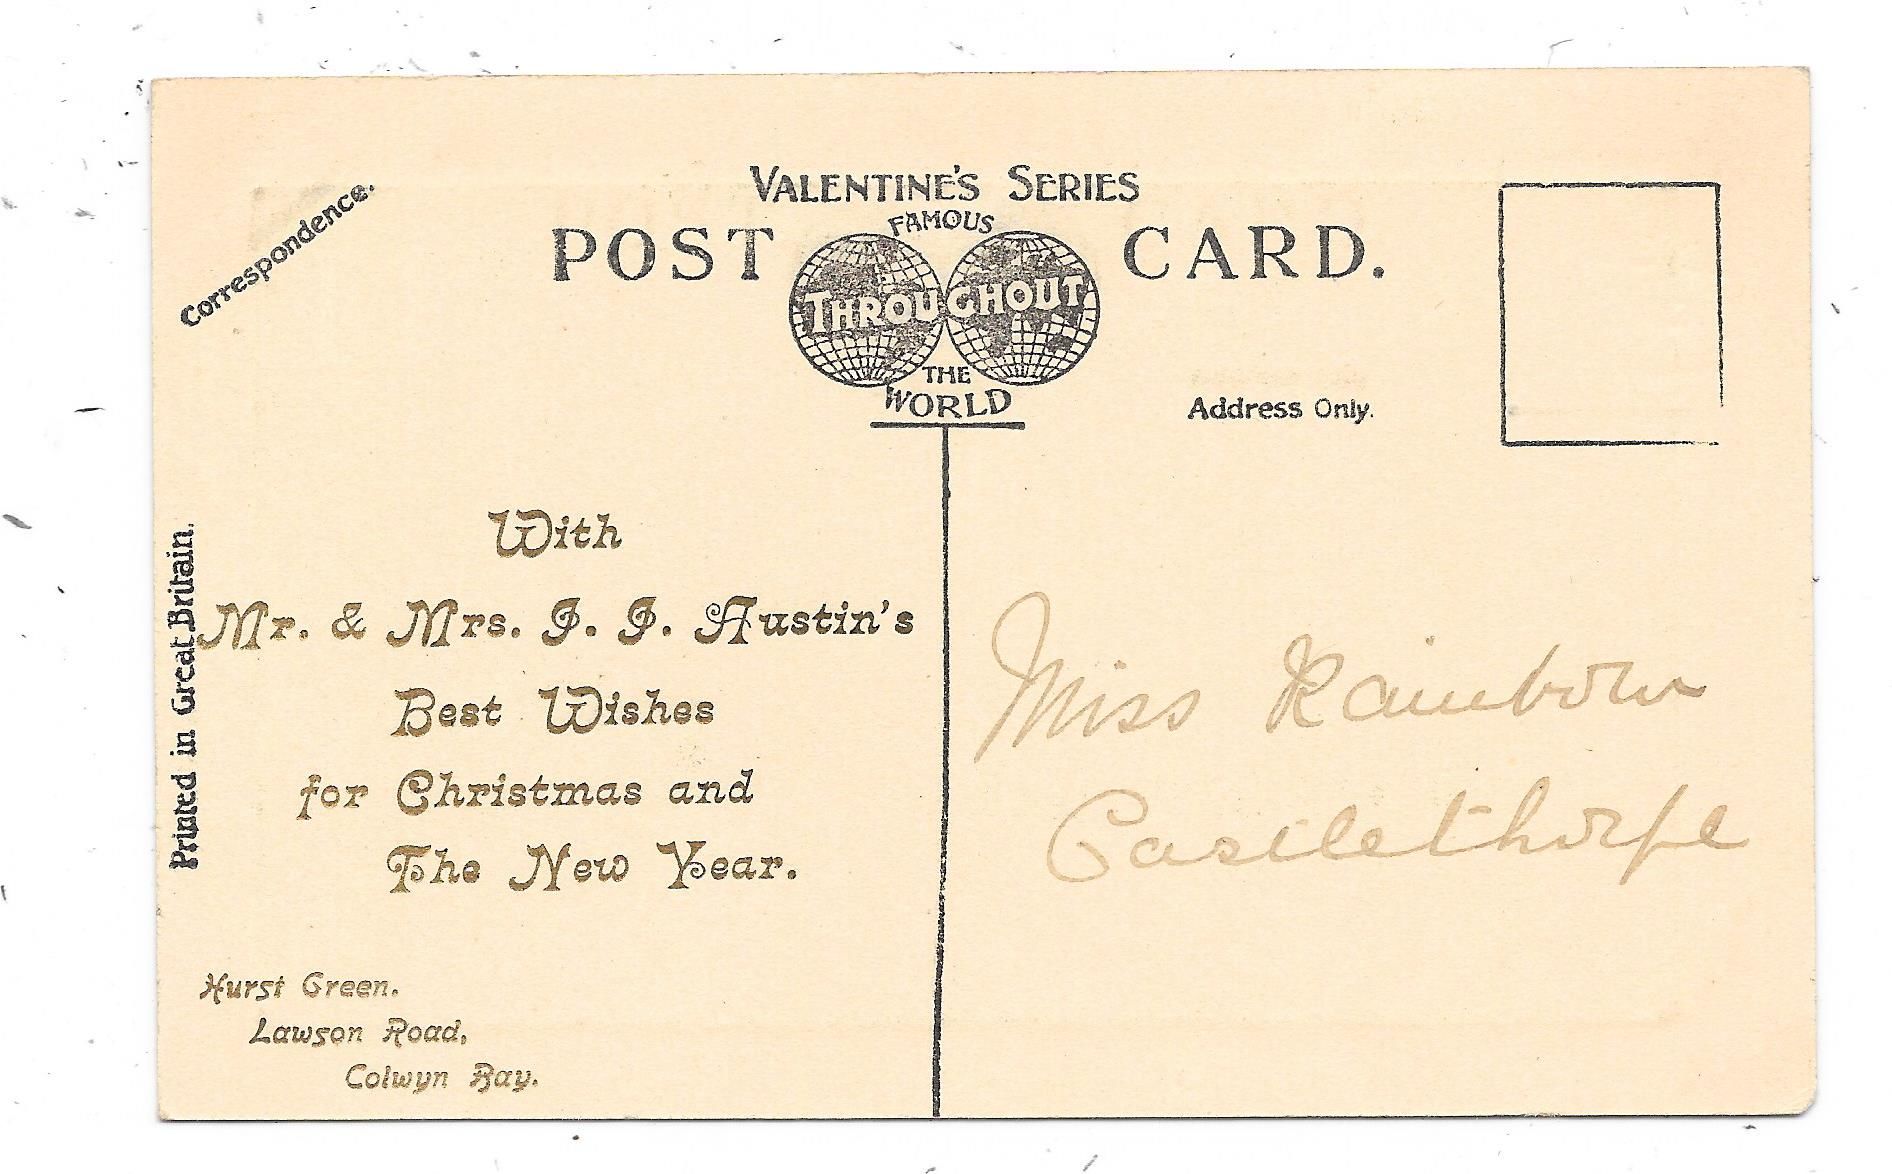 Correspondence.
VALENTINE'S SERIES
POST CARD.
FAMOUS
THROUGHOUT
THE
WORLD
Address Only.
Printed in Great Britain.
With
Mr. & Mrs. J. J. Austin's
Best Wishes
for Christmas and
The New Year.
Hurst Green.
Lawson Road,
Colwyn Bay.
Miss Rainbow
Castlethorpe